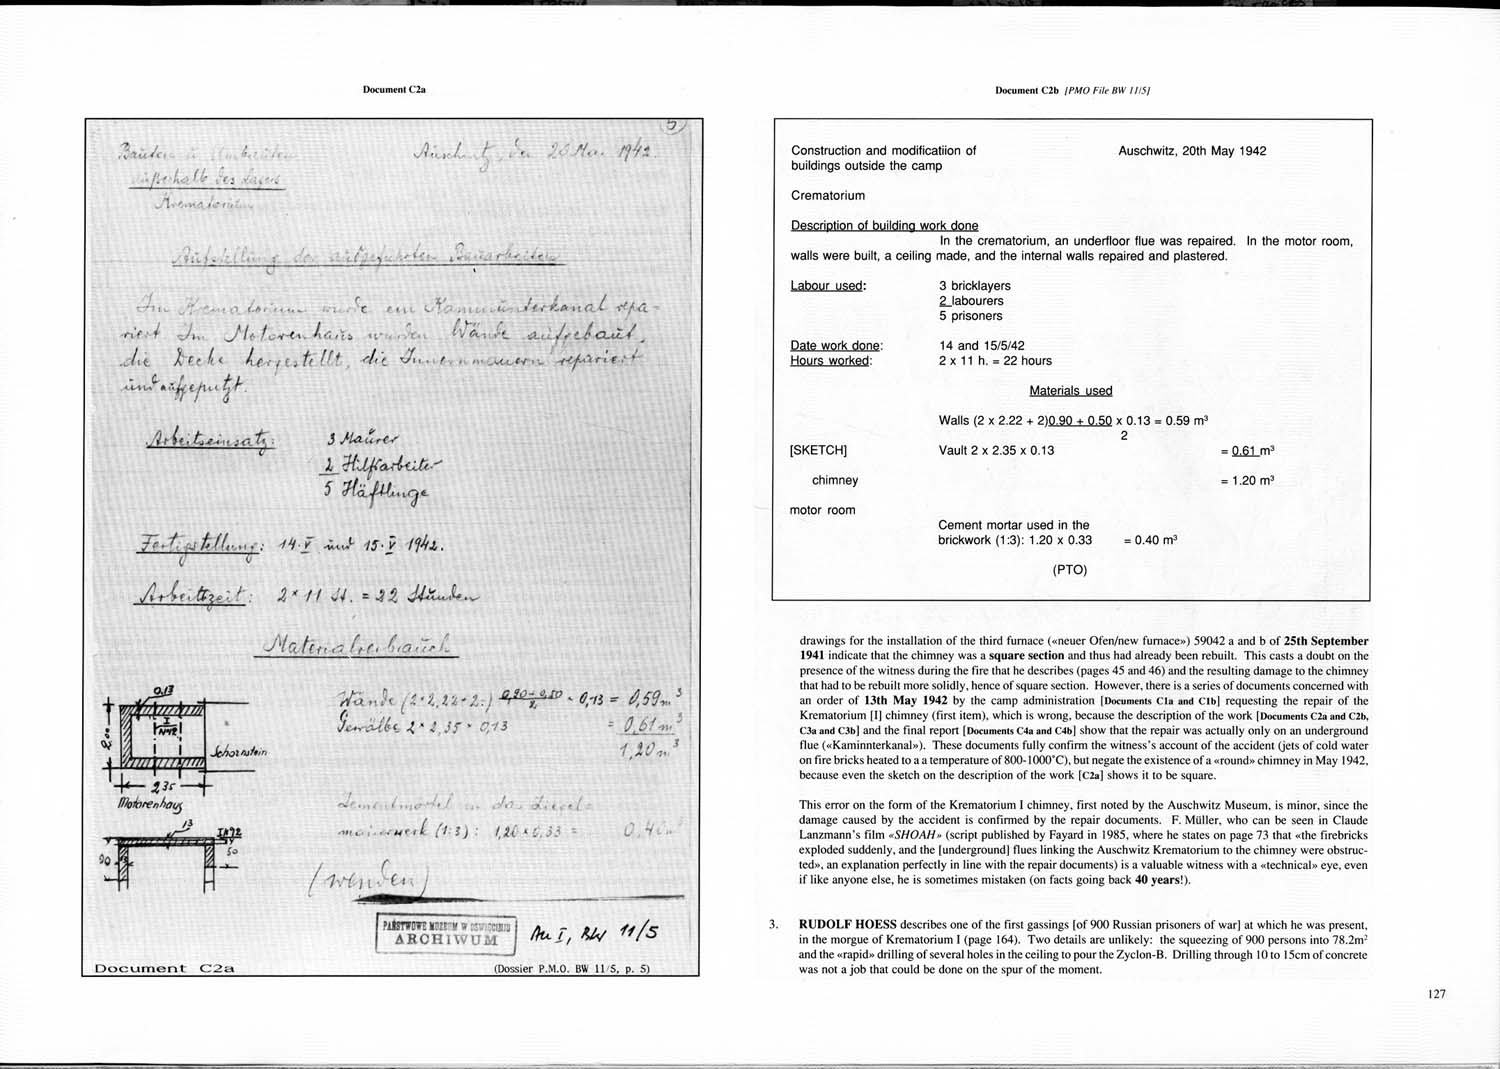 Document C2a
5
Bauten u. Umbauten
außerhalb des Lagers
Krematorium
Auschwitz, den 20 Mai 1942.
Aufstellung der ausgeführten Bauarbeiten
Im Krematorium wurde ein Kaminunterkanal repa-
riert Im Motorenhaus wurden Wände aufgebaut,
die Decke hergestellt, die Innenmauern repariert
und aufgeputzt.
Arbeitseinsatz: 3 Maurer
2 Hilfsarbeiter
5 Häftlinge
Fertigstellung: 14. V und 15. V 1942.
Arbeitszeit: 2 x 11 St. = 22 Stunden
Materialverbrauch
Wände (2·2,22+2.) 0,90+0,50 · 0,13 = 0,59 m³
2
Gewölbe 2 x 2,35 x 0,13 = 0,61 m³
1,20 m³
Zementmörtel in das Ziegel=
mauerwerk (1:3): 1,20 x 0,33 = 0,40 m³
(wenden)
0.13
I
N42
2.00
Schornstein
235
Motorenhaus
13
50
90
PAŃSTWOWE MUZEUM W OŚWIĘCIMIU
ARCHIWUM
Au I, BW 11/5
Document C2a
(Dossier P.M.O. BW 11/5, p. 5)
Document C2b [PMO File BW 11/5]
Construction and modificatiion of
buildings outside the camp
Auschwitz, 20th May 1942
Crematorium
Description of building work done
In the crematorium, an underfloor flue was repaired. In the motor room,
walls were built, a ceiling made, and the internal walls repaired and plastered.
Labour used: 3 bricklayers
2 labourers
5 prisoners
Date work done: 14 and 15/5/42
Hours worked: 2 x 11 h. = 22 hours
Materials used
Walls (2 x 2.22 + 2)0.90 + 0.50 x 0.13 = 0.59 m³
2
[SKETCH] Vault 2 x 2.35 x 0.13 = 0.61 m³
chimney = 1.20 m³
motor room
Cement mortar used in the
brickwork (1:3): 1.20 x 0.33 = 0.40 m³
(PTO)
drawings for the installation of the third furnace («neuer Ofen/new furnace») 59042 a and b of 25th September
1941 indicate that the chimney was a square section and thus had already been rebuilt. This casts a doubt on the
presence of the witness during the fire that he describes (pages 45 and 46) and the resulting damage to the chimney
that had to be rebuilt more solidly, hence of square section. However, there is a series of documents concerned with
an order of 13th May 1942 by the camp administration [Documents C1a and C1b] requesting the repair of the
Krematorium [I] chimney (first item), which is wrong, because the description of the work [Documents C2a and C2b,
C3a and C3b] and the final report [Documents C4a and C4b] show that the repair was actually only on an underground
flue («Kaminnterkanal»). These documents fully confirm the witness's account of the accident (jets of cold water
on fire bricks heated to a a temperature of 800-1000°C), but negate the existence of a «round» chimney in May 1942,
because even the sketch on the description of the work [C2a] shows it to be square.
This error on the form of the Krematorium I chimney, first noted by the Auschwitz Museum, is minor, since the
damage caused by the accident is confirmed by the repair documents. F. Müller, who can be seen in Claude
Lanzmann's film «SHOAH» (script published by Fayard in 1985, where he states on page 73 that «the firebricks
exploded suddenly, and the [underground] flues linking the Auschwitz Krematorium to the chimney were obstruc-
ted», an explanation perfectly in line with the repair documents) is a valuable witness with a «technical» eye, even
if like anyone else, he is sometimes mistaken (on facts going back 40 years!).
3. RUDOLF HOESS describes one of the first gassings [of 900 Russian prisoners of war] at which he was present,
in the morgue of Krematorium I (page 164). Two details are unlikely: the squeezing of 900 persons into 78.2m²
and the «rapid» drilling of several holes in the ceiling to pour the Zyclon-B. Drilling through 10 to 15cm of concrete
was not a job that could be done on the spur of the moment.
127